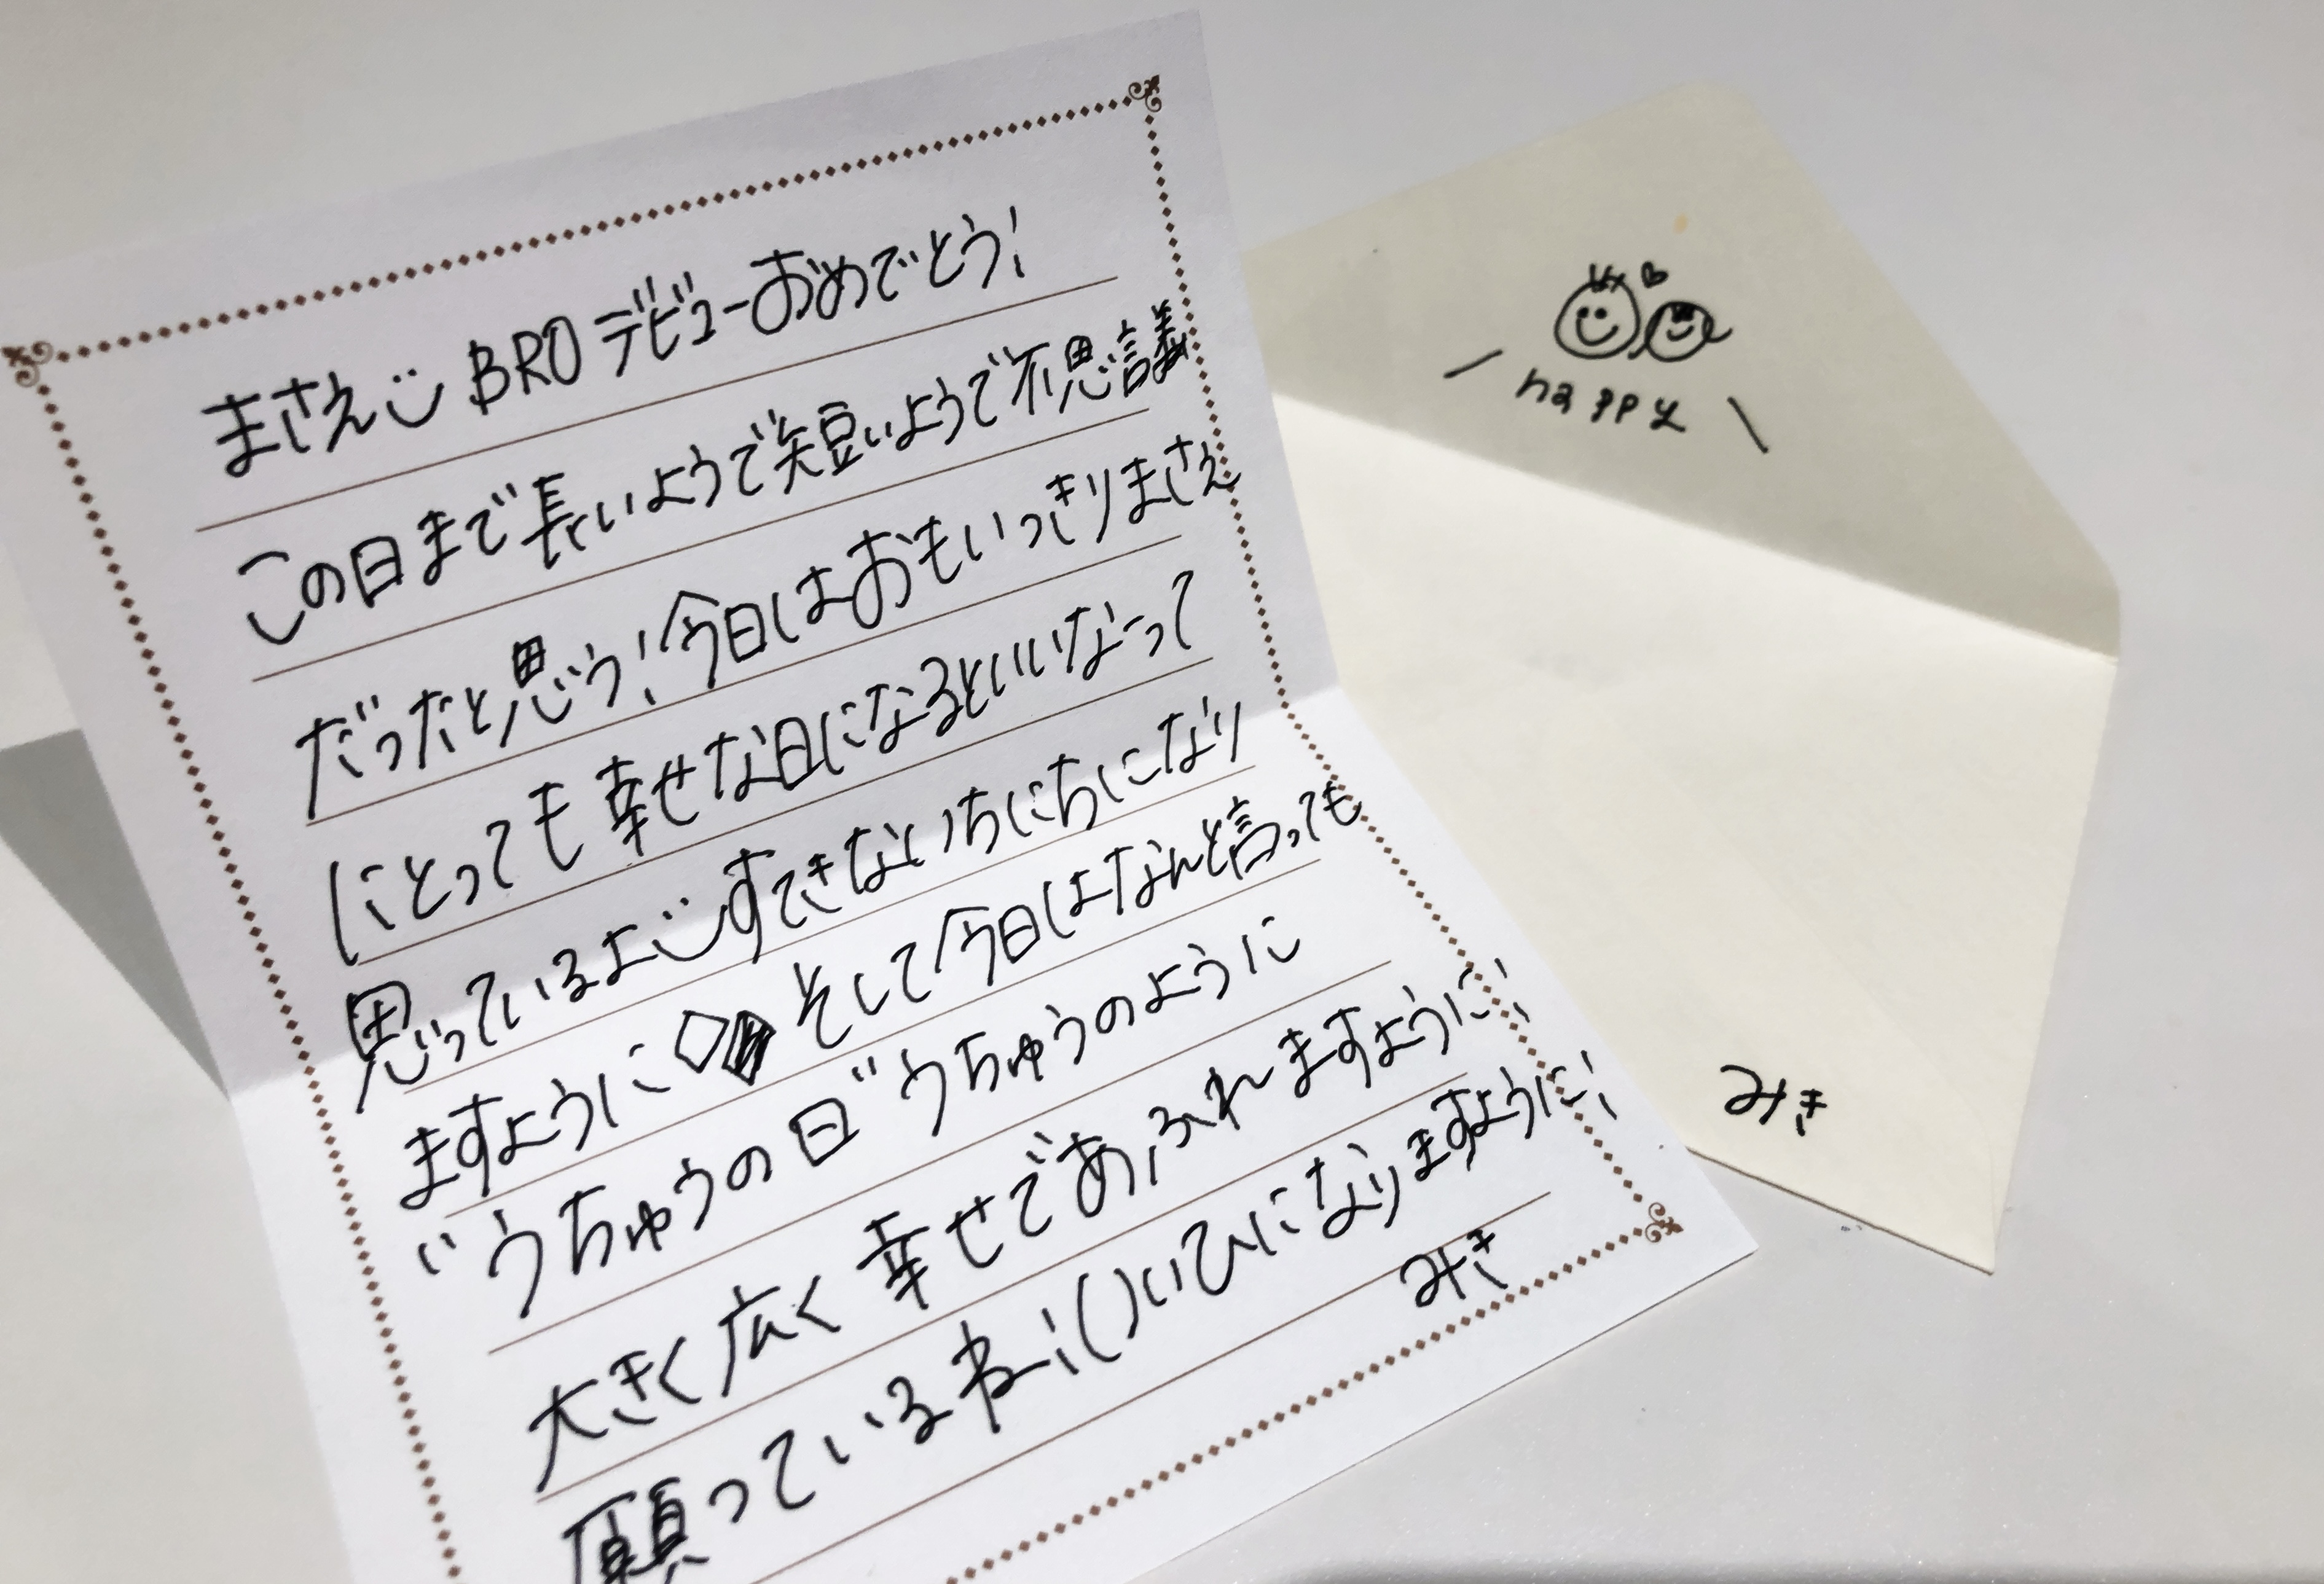 まさえ BRO デビューおめでとう!
この日まで長いようで短いようで不思議
だっだと思う!今日はおもいっきりまさえ
にとっても幸せな日になるといいなーって
思っているよ すてきないちにちになり
ますように そして今日はなんと言っても
"うちゅうの日" うちゅうのように
大きく広く 幸せであふれますように!
願っているねー! いいひになりますように!
みき
happy
みき